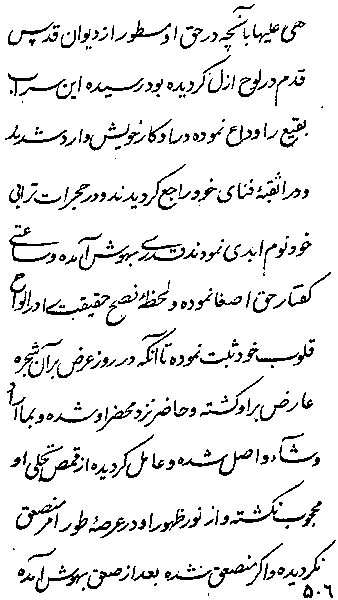 هی علیها بآنچه در حق او مسطور از دیوان قدس
قدم در لوح ازل گردیده بود رسیده این سراب
بقیع را وداع نموده در ادکار خویش وارد شدید
و در افئدهٔ فنای خود راجع گردیدند و در حجرات ترابی
خود نوم ابدی نمودند قدری بهوش آمده و ساعتی
گفتار حق اصغا نموده و لحظهٔ نصح حقیقت را در الواح
قلوب خود ثبت نموده تا آنکه در روز عرض بر آن شجره
عارض بر او گشته و حاضر نزد محضر او شده و بما اراد
و شاء واصل شده و عامل گردیده از قمص تجلی او
محجوب نگشته و از نور ظهور او در عرصهٔ طور امر منصعق
نگردیده و اگر منصعق شده بعد از صعق بهوش آمده
۵۰۶